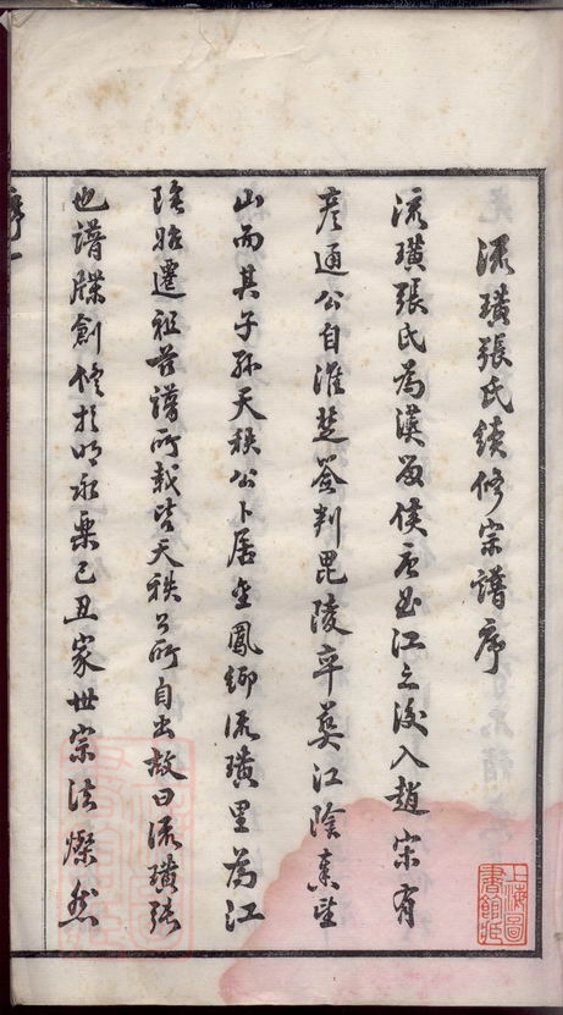 流璜張氏續修宗譜序
流璜張氏為漢留侯唐曲江之後入趙宋有
彦通公自淮楚簽判毘陵卒葬江陰秦望
山而其子孫天秩公卜居金鳳鄉流璜里為江
陰始遷祖舊譜所載皆天秩公所自出故曰流璜張
也譜牒創修於明永樂己丑家世宗法燦然
序一
上海圖
書館藏